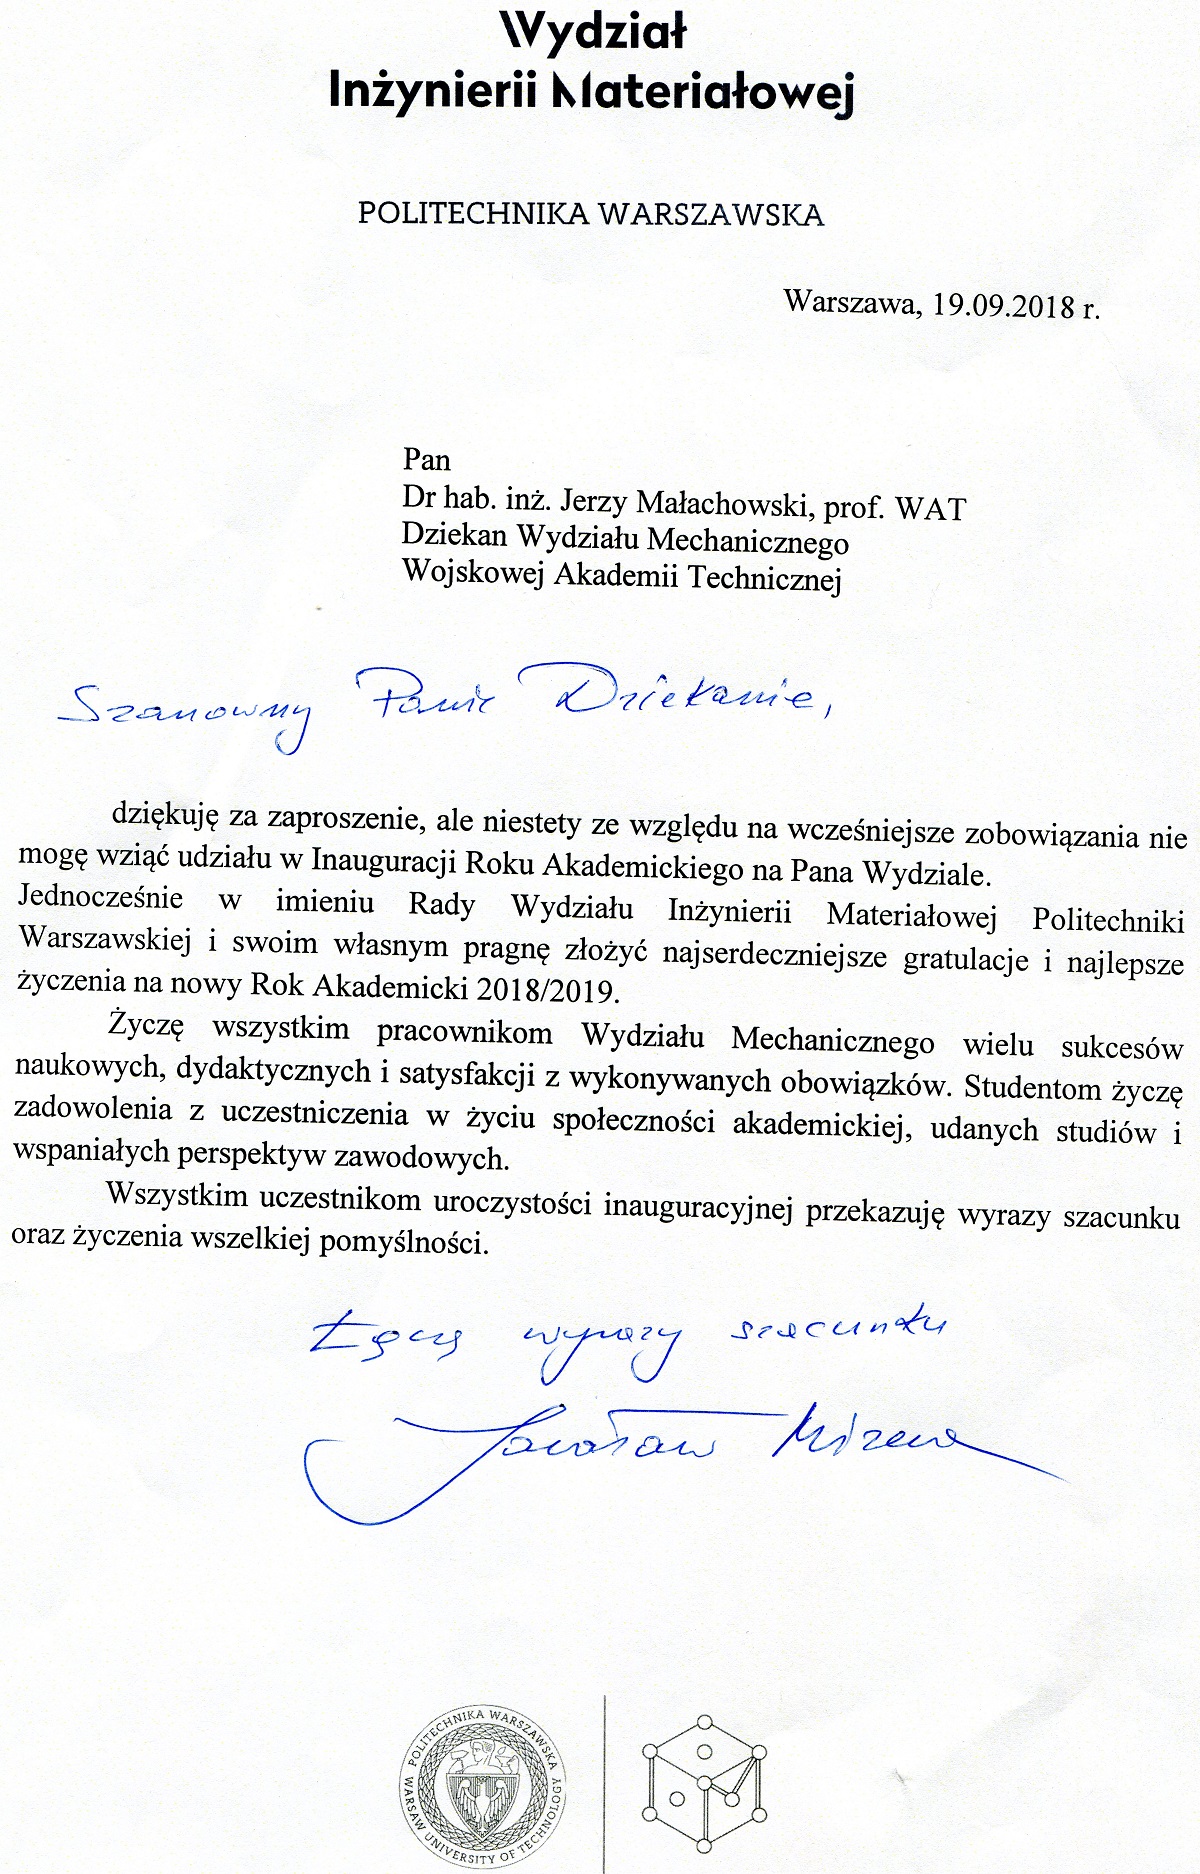 Wydział
Inżynierii Materiałowej
POLITECHNIKA WARSZAWSKA
Warszawa, 19.09.2018 r.
Pan
Dr hab. inż. Jerzy Małachowski, prof. WAT
Dziekan Wydziału Mechanicznego
Wojskowej Akademii Technicznej
Szanowny Panie Dziekanie,
dziękuję za zaproszenie, ale niestety ze względu na wcześniejsze zobowiązania nie
mogę wziąć udziału w Inauguracji Roku Akademickiego na Pana Wydziale.
Jednocześnie w imieniu Rady Wydziału Inżynierii Materiałowej Politechniki
Warszawskiej i swoim własnym pragnę złożyć najserdeczniejsze gratulacje i najlepsze
życzenia na nowy Rok Akademicki 2018/2019.
Życzę wszystkim pracownikom Wydziału Mechanicznego wielu sukcesów
naukowych, dydaktycznych i satysfakcji z wykonywanych obowiązków. Studentom życzę
zadowolenia z uczestniczenia w życiu społeczności akademickiej, udanych studiów i
wspaniałych perspektyw zawodowych.
Wszystkim uczestnikom uroczystości inauguracyjnej przekazuję wyrazy szacunku
oraz życzenia wszelkiej pomyślności.
Łączę wyrazy szacunku
Jarosław Mizera
POLITECHNIKA WARSZAWSKA
WARSAW UNIVERSITY OF TECHNOLOGY